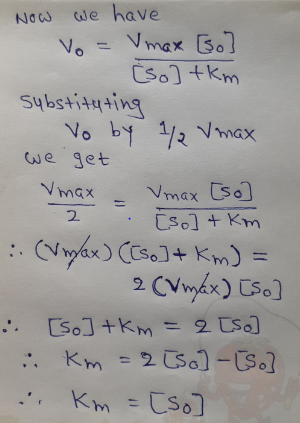 Now we have
V₀ = Vmax [S₀]
[S₀] + Km
Substituting
V₀ by 1/2 Vmax
we get
Vmax = Vmax [S₀]
2 [S₀] + Km
∴ (Vmax) ([S₀] + Km) =
2 (Vmax) [S₀]
∴ [S₀] + Km = 2 [S₀]
∴ Km = 2 [S₀] - [S₀]
∴ Km = [S₀]